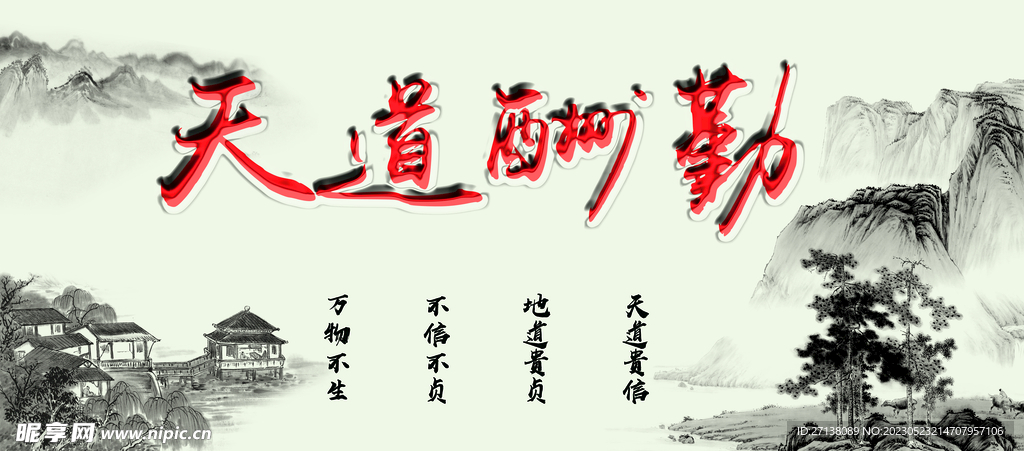 天道酬勤
天道貴信
地道貴贞
不信不贞
万物不生
昵享网 www.nipic.cn
ID:27138089 NO:20230523214707957106